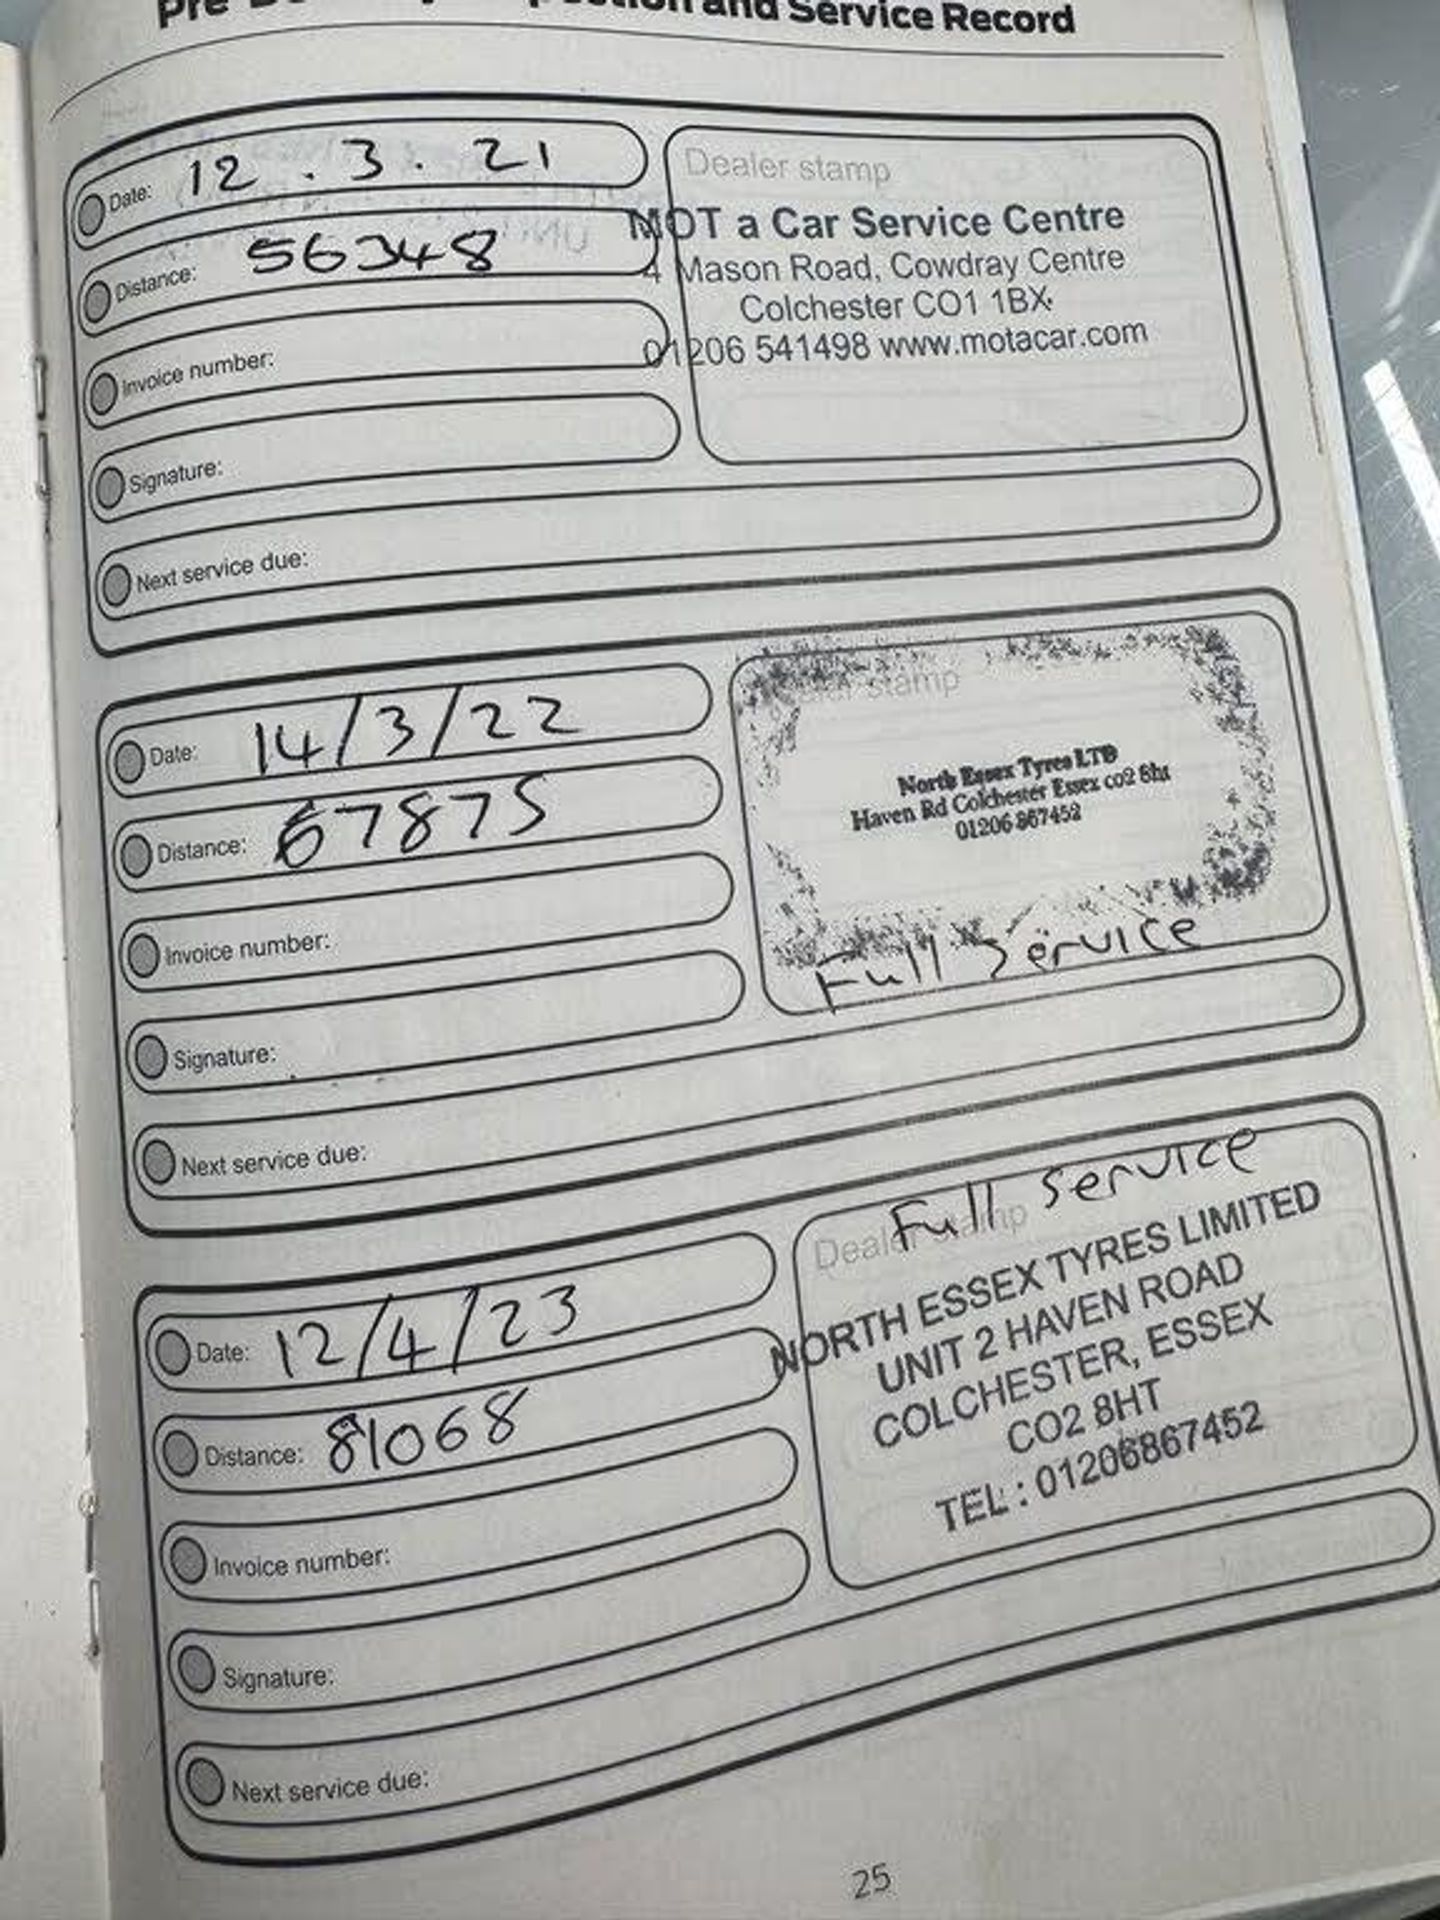 and Service Record
Date: 12.3.21
Distance: 56348
Invoice number:
Signature:
Next service due:
Dealer stamp
MOT a Car Service Centre
4 Mason Road, Cowdray Centre
Colchester CO1 1BX
01206 541498 www.motacar.com
Date: 14/3/22
Distance: 67875
Invoice number:
Signature:
Next service due:
stamp
North Essex Tyres LTD
Haven Rd Colchester Essex co2 8ht
01206 867452
Full Service
Date: 12/4/23
Distance: 81068
Invoice number:
Signature:
Next service due:
Full Service
Dealer stamp
NORTH ESSEX TYRES LIMITED
UNIT 2 HAVEN ROAD
COLCHESTER, ESSEX
CO2 8HT
TEL : 01206867452
25